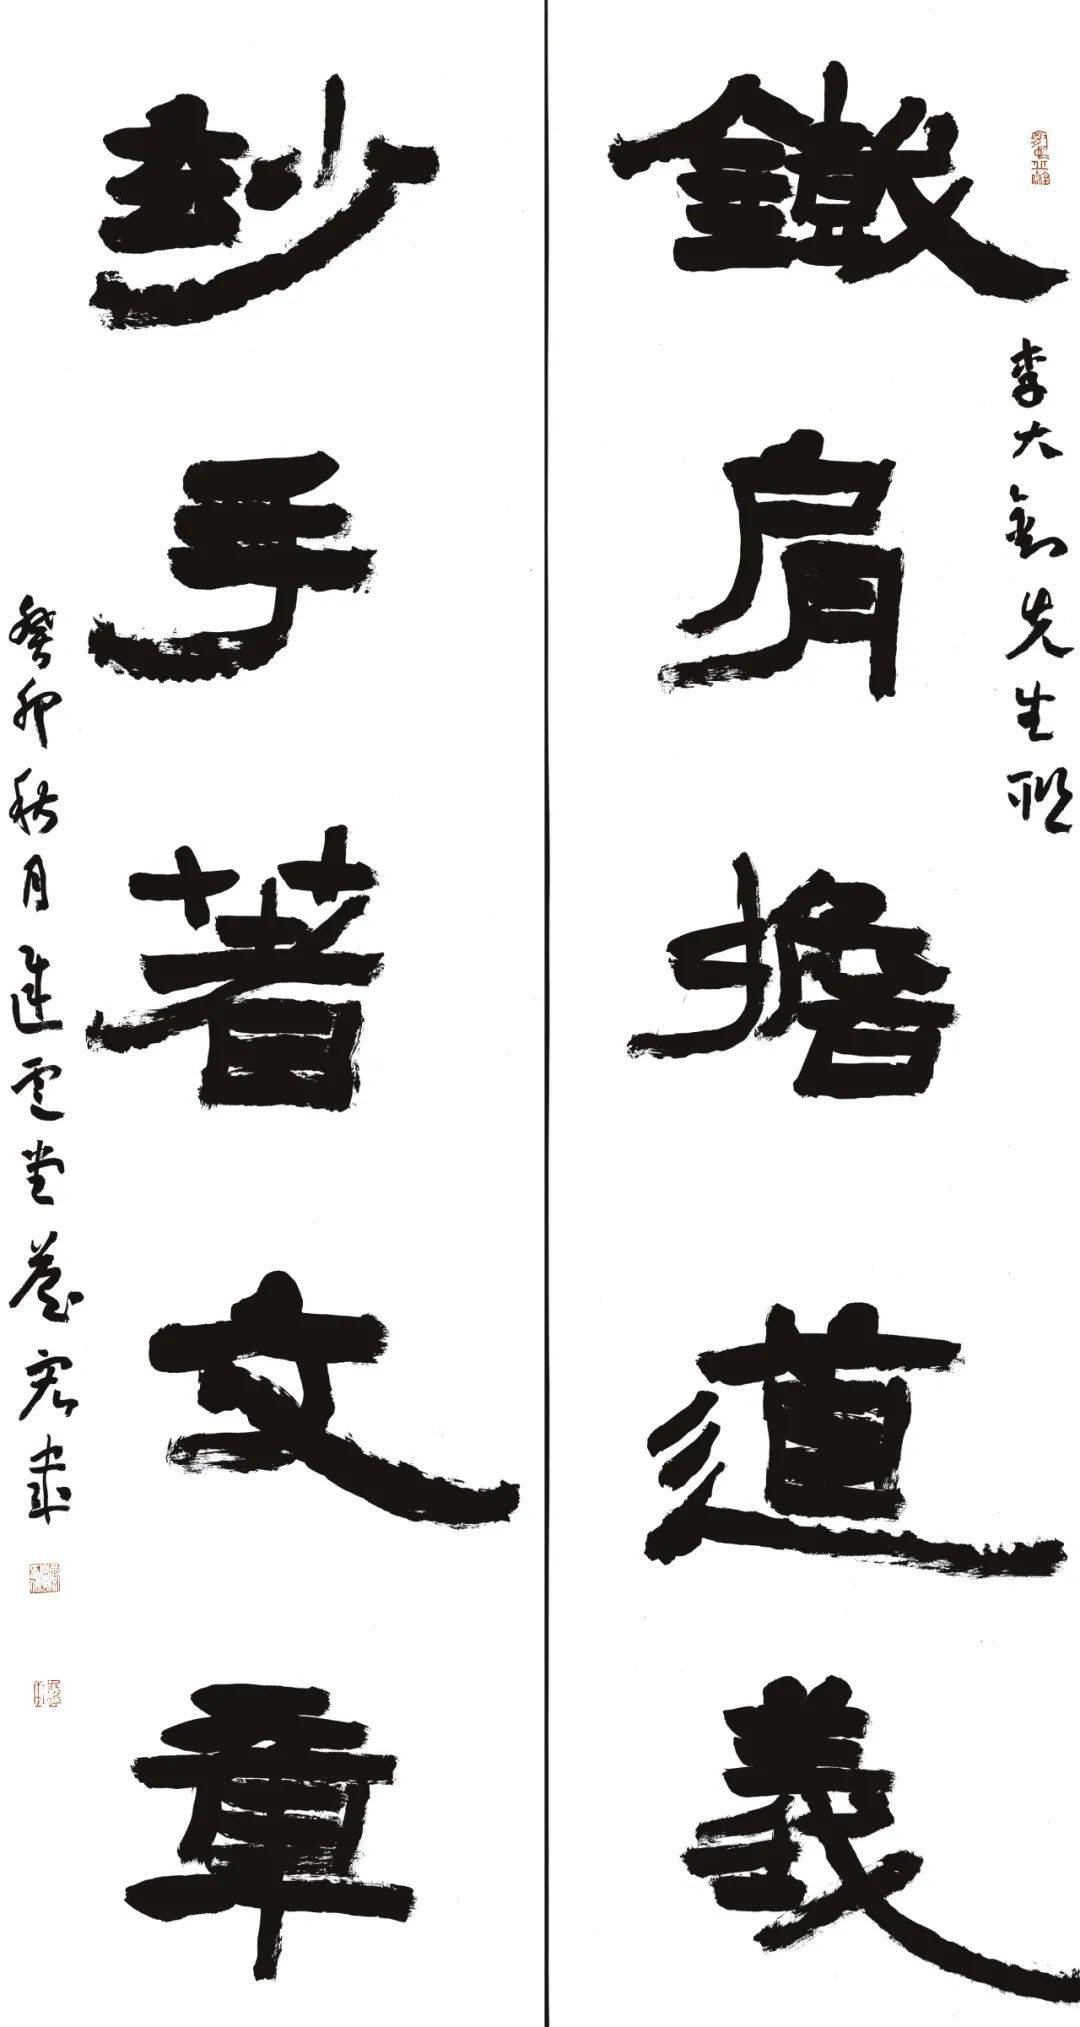 鐵肩擔道義
李大釗先生聯
玅手著文章
癸卯秋月連雲堂